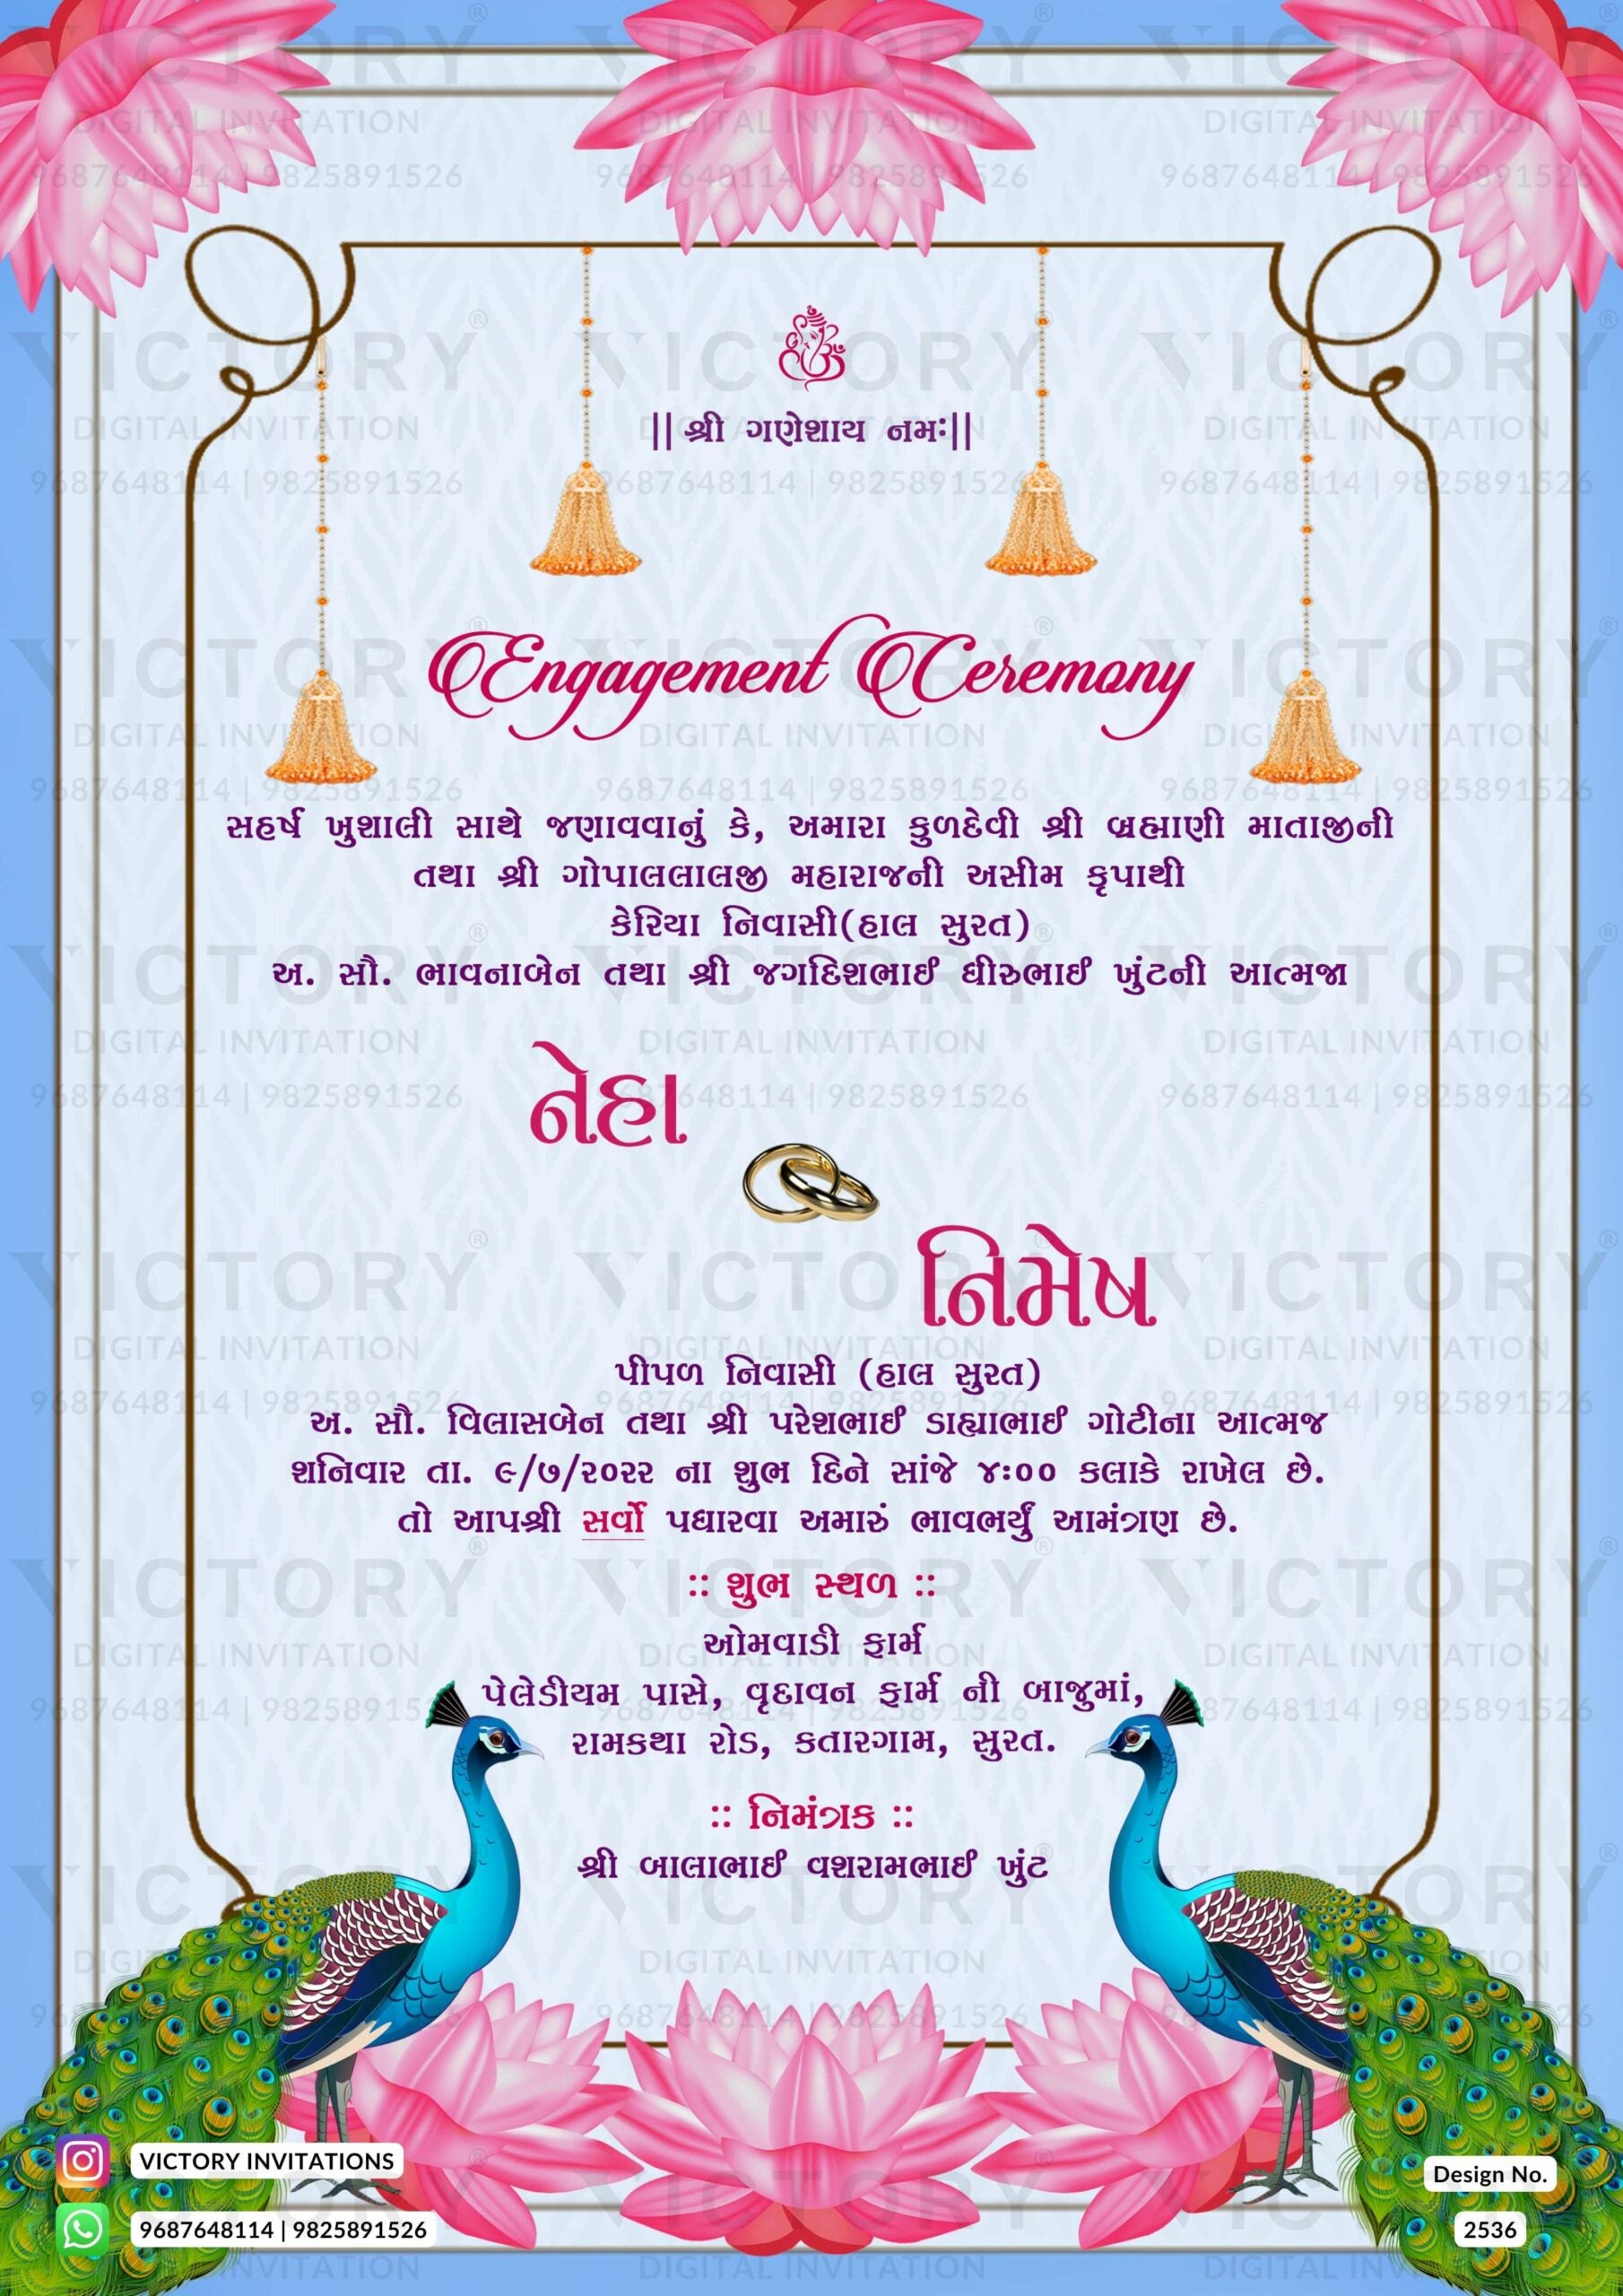 || શ્રી ગણેશાય નમઃ||
Engagement Ceremony
સહર્ષ ખુશાલી સાથે જણાવવાનું કે, અમારા કુળદેવી શ્રી બ્રહ્માણી માતાજીની
તથા શ્રી ગોપાલલાલજી મહારાજની અસીમ કૃપાથી
કેરિયા નિવાસી(હાલ સુરત)
અ. સૌ. ભાવનાબેન તથા શ્રી જગદિશભાઈ ધીરુભાઈ ખુંટની આત્મજા
નેહા
નિમેષ
પીપળ નિવાસી (હાલ સુરત)
અ. સૌ. વિલાસબેન તથા શ્રી પરેશભાઈ ડાહ્યાભાઈ ગોટીના આત્મજ
શનિવાર તા. ૯/૭/૨૦૨૨ ના શુભ દિને સાંજે ૪:૦૦ કલાકે રાખેલ છે.
તો આપશ્રી સર્વો પધારવા અમારું ભાવભર્યું આમંત્રણ છે.
:: શુભ સ્થળ ::
ઓમવાડી ફાર્મ
પેલેડીયમ પાસે, વૃદાવન ફાર્મ ની બાજુમાં,
રામકથા રોડ, કતારગામ, સુરત.
:: નિમંત્રક ::
શ્રી બાલાભાઈ વશરામભાઈ ખુંટ
VICTORY INVITATIONS
9687648114 | 9825891526
Design No.
2536
VICTORY
DIGITAL INVITATION
9687648114 | 9825891526